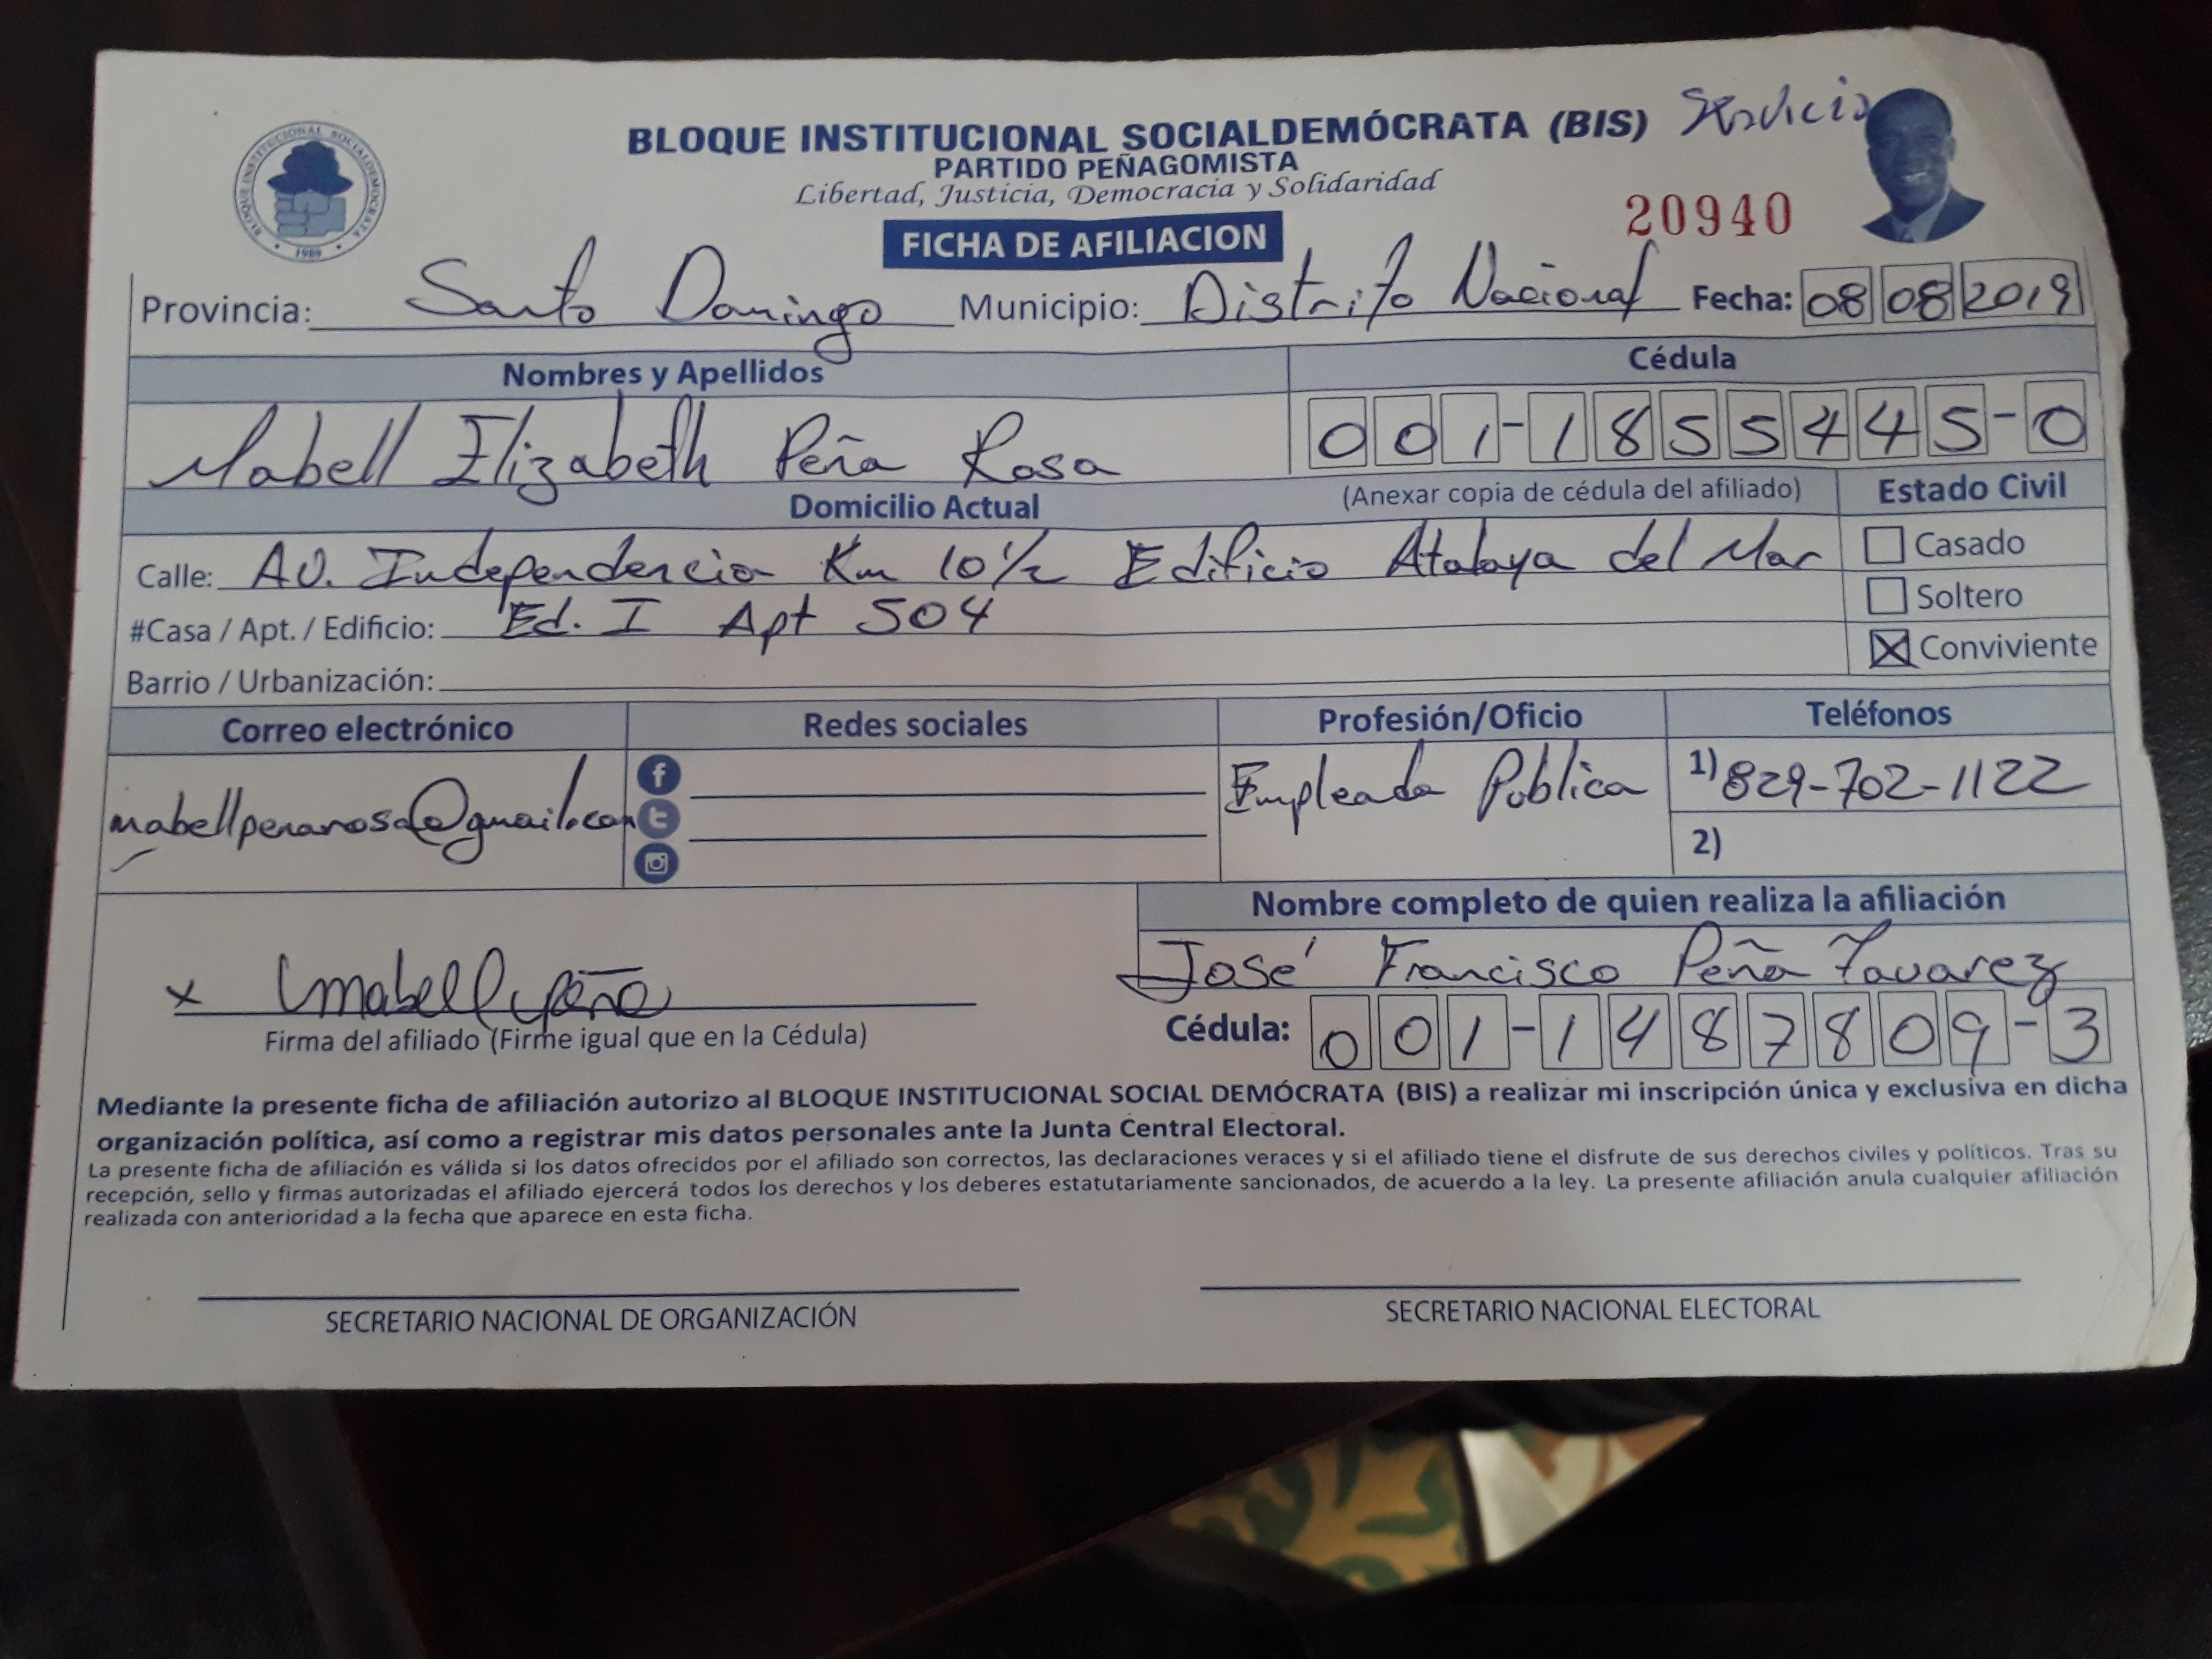 BLOQUE INSTITUCIONAL SOCIALDEMÓCRATA (BIS) Servicio
PARTIDO PEÑAGOMISTA
Libertad, Justicia, Democracia y Solidaridad
BLOQUE INSTITUCIONAL SOCIALDEMOCRATA
1989
20940
FICHA DE AFILIACION
Provincia: Santo Domingo Municipio: Distrito Nacional Fecha: 08 08 2019
Nombres y Apellidos Cédula
Mabell Elizabeth Peña Rosa 001-1855445-0
Domicilio Actual (Anexar copia de cédula del afiliado) Estado Civil
Calle: Av. Independencia Km 10 1/2 Edificio Atalaya del Mar Casado
#Casa / Apt. / Edificio: Ed. I Apt 504 Soltero
Barrio / Urbanización: Conviviente
Correo electrónico Redes sociales Profesión/Oficio Teléfonos
mabellpenarosa@gmail.com Empleada Publica 1) 829-702-1122
2)
Nombre completo de quien realiza la afiliación
José Francisco Peña Tavarez
x Mabell Peña
Firma del afiliado (Firme igual que en la Cédula) Cédula: 001-1487809-3
Mediante la presente ficha de afiliación autorizo al BLOQUE INSTITUCIONAL SOCIAL DEMÓCRATA (BIS) a realizar mi inscripción única y exclusiva en dicha
organización política, así como a registrar mis datos personales ante la Junta Central Electoral.
La presente ficha de afiliación es válida si los datos ofrecidos por el afiliado son correctos, las declaraciones veraces y si el afiliado tiene el disfrute de sus derechos civiles y políticos. Tras su
recepción, sello y firmas autorizadas el afiliado ejercerá todos los derechos y los deberes estatutariamente sancionados, de acuerdo a la ley. La presente afiliación anula cualquier afiliación
realizada con anterioridad a la fecha que aparece en esta ficha.
SECRETARIO NACIONAL DE ORGANIZACIÓN SECRETARIO NACIONAL ELECTORAL